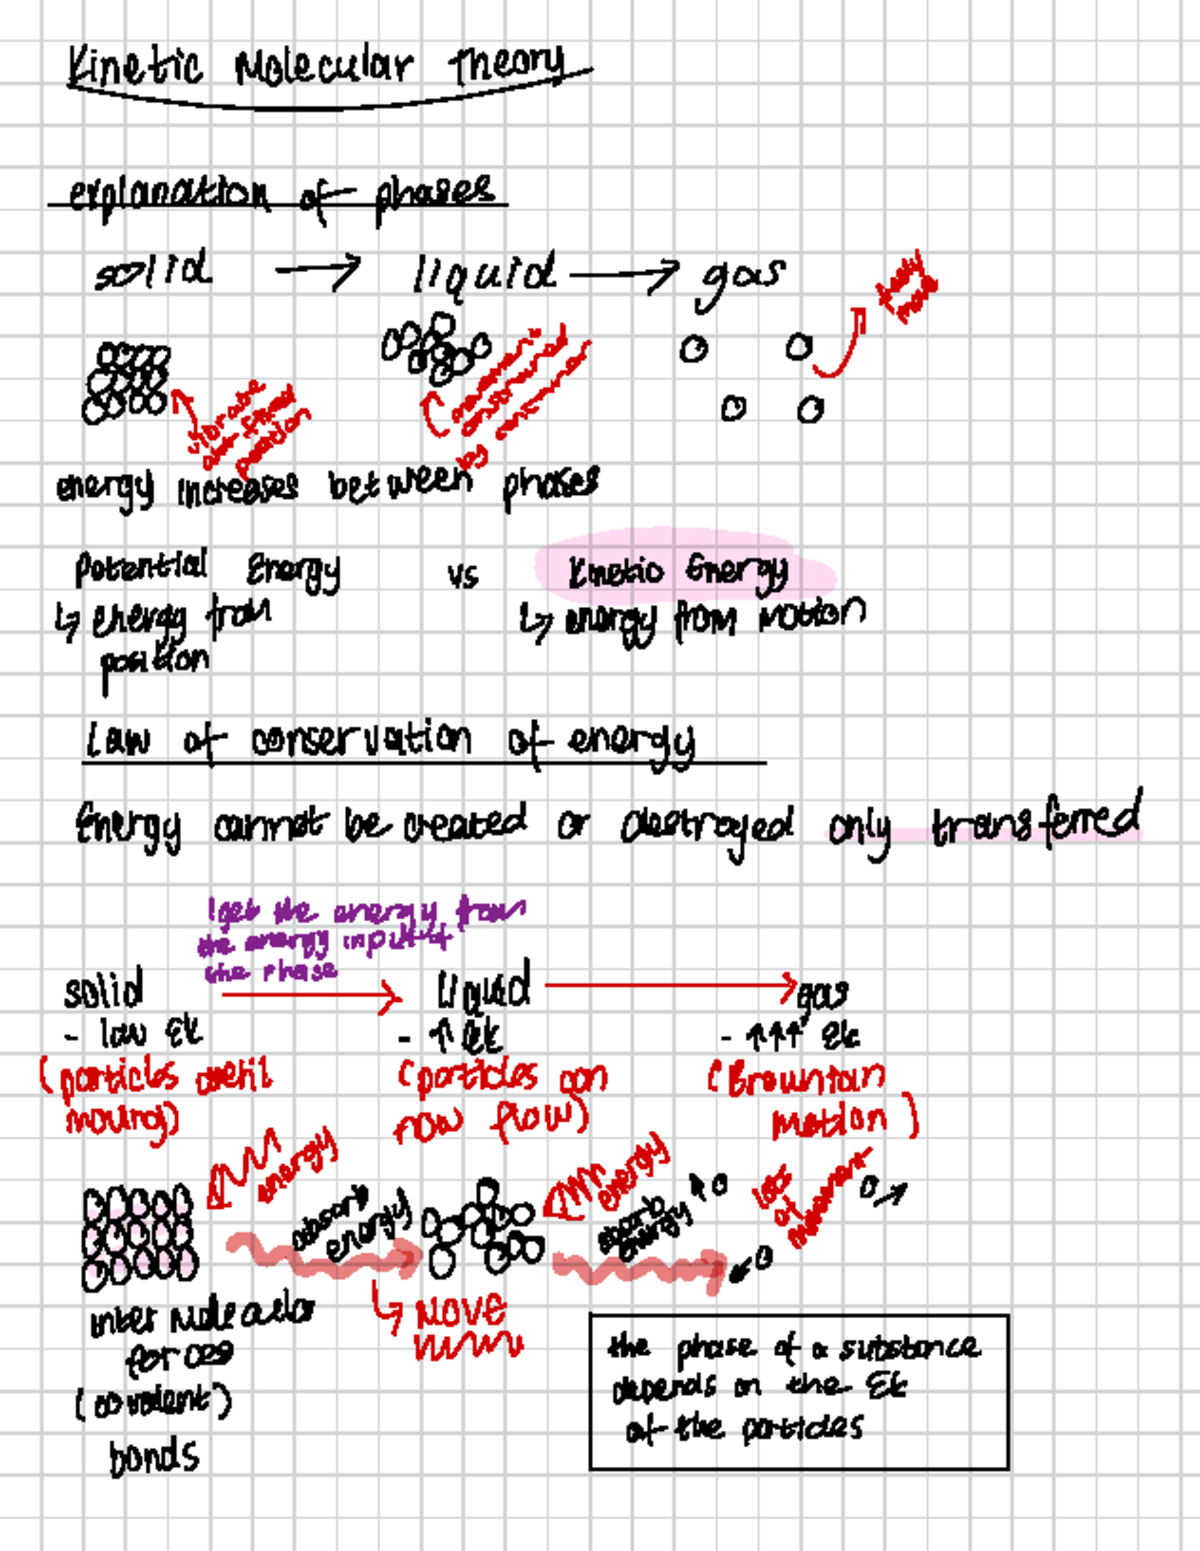 Kinetic Molecular Theory
explanation of phases
solid → liquid → gas
freely
move
vibrate
over fixed
position
movement is
constrained
by container
energy increases between phases
Potential Energy vs Kinetic Energy
↳ energy from
position
↳ energy from motion
Law of conservation of energy
Energy cannot be created or destroyed only transferred
!get the energy from
the energy input of
the phase
solid → liquid → gas
- low Ek
- ↑ Ek
- ↑↑↑ Ek
(particles
moving)
(particles can
now flow)
(Brountain
motion)
energy
absorb
energy
energy
absorb
energy
lots
of
movement
↳ MOVE
inter Molecular
forces
(covalent)
bonds
the phase of a substance
depends on the Ek
of the particles